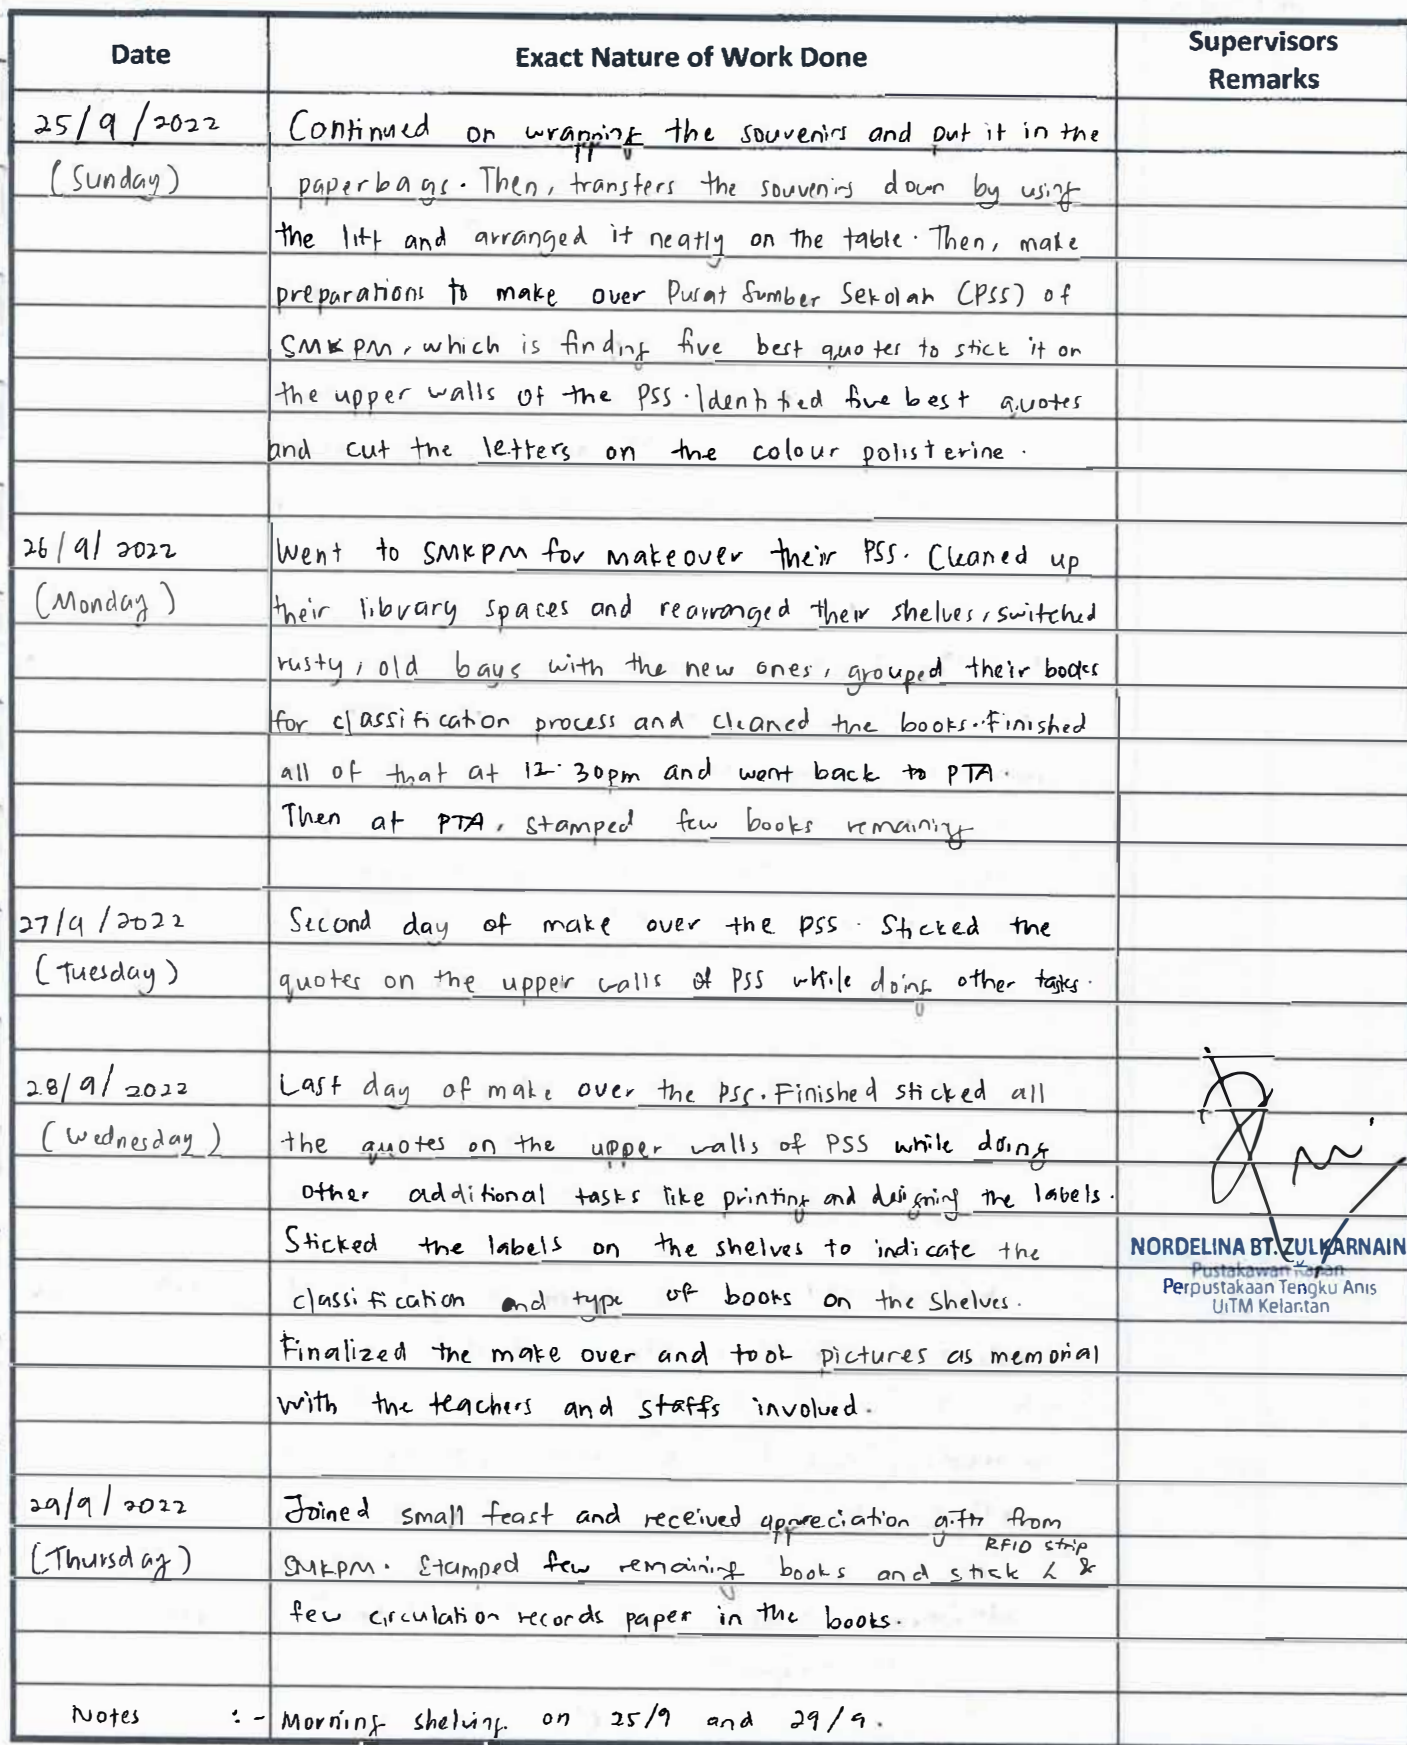 Date
Exact Nature of Work Done
Supervisors
Remarks
25/9/2022
(Sunday)
Continued on wrapping the souvenirs and put it in the
paperbags. Then, transfers the souvenirs down by using
the lift and arranged it neatly on the table. Then, make
preparations to make over Pusat Sumber Sekolah (PSS) of
SMKPM, which is finding five best quotes to stick it on
the upper walls of the PSS. Identified five best quotes
and cut the letters on the colour polisterine.
26/9/2022
(Monday)
Went to SMKPM for makeover their PSS. Cleaned up
their library spaces and rearranged their shelves, switched
rusty, old bays with the new ones, grouped their books
for classification process and cleaned the books. Finished
all of that at 12.30pm and went back to PTA.
Then at PTA, stamped few books remaining
27/9/2022
(Tuesday)
Second day of make over the PSS. Sticked the
quotes on the upper walls of PSS while doing other tasks.
28/9/2022
(Wednesday)
Last day of make over the PSS. Finished sticked all
the quotes on the upper walls of PSS while doing
other additional tasks like printing and designing the labels.
Sticked the labels on the shelves to indicate the
classification and type of books on the shelves.
Finalized the make over and took pictures as memorial
with the teachers and staffs involved.
NORDELINA BT. ZULKARNAIN
Pustakawan Kanan
Perpustakaan Tengku Anis
UiTM Kelantan
29/9/2022
(Thursday)
Joined small feast and received appreciation gifts from
RFID strip
SMKPM. Stamped few remaining books and stick &
few circulation records paper in the books.
Notes :- Morning shelving on 25/9 and 29/9.